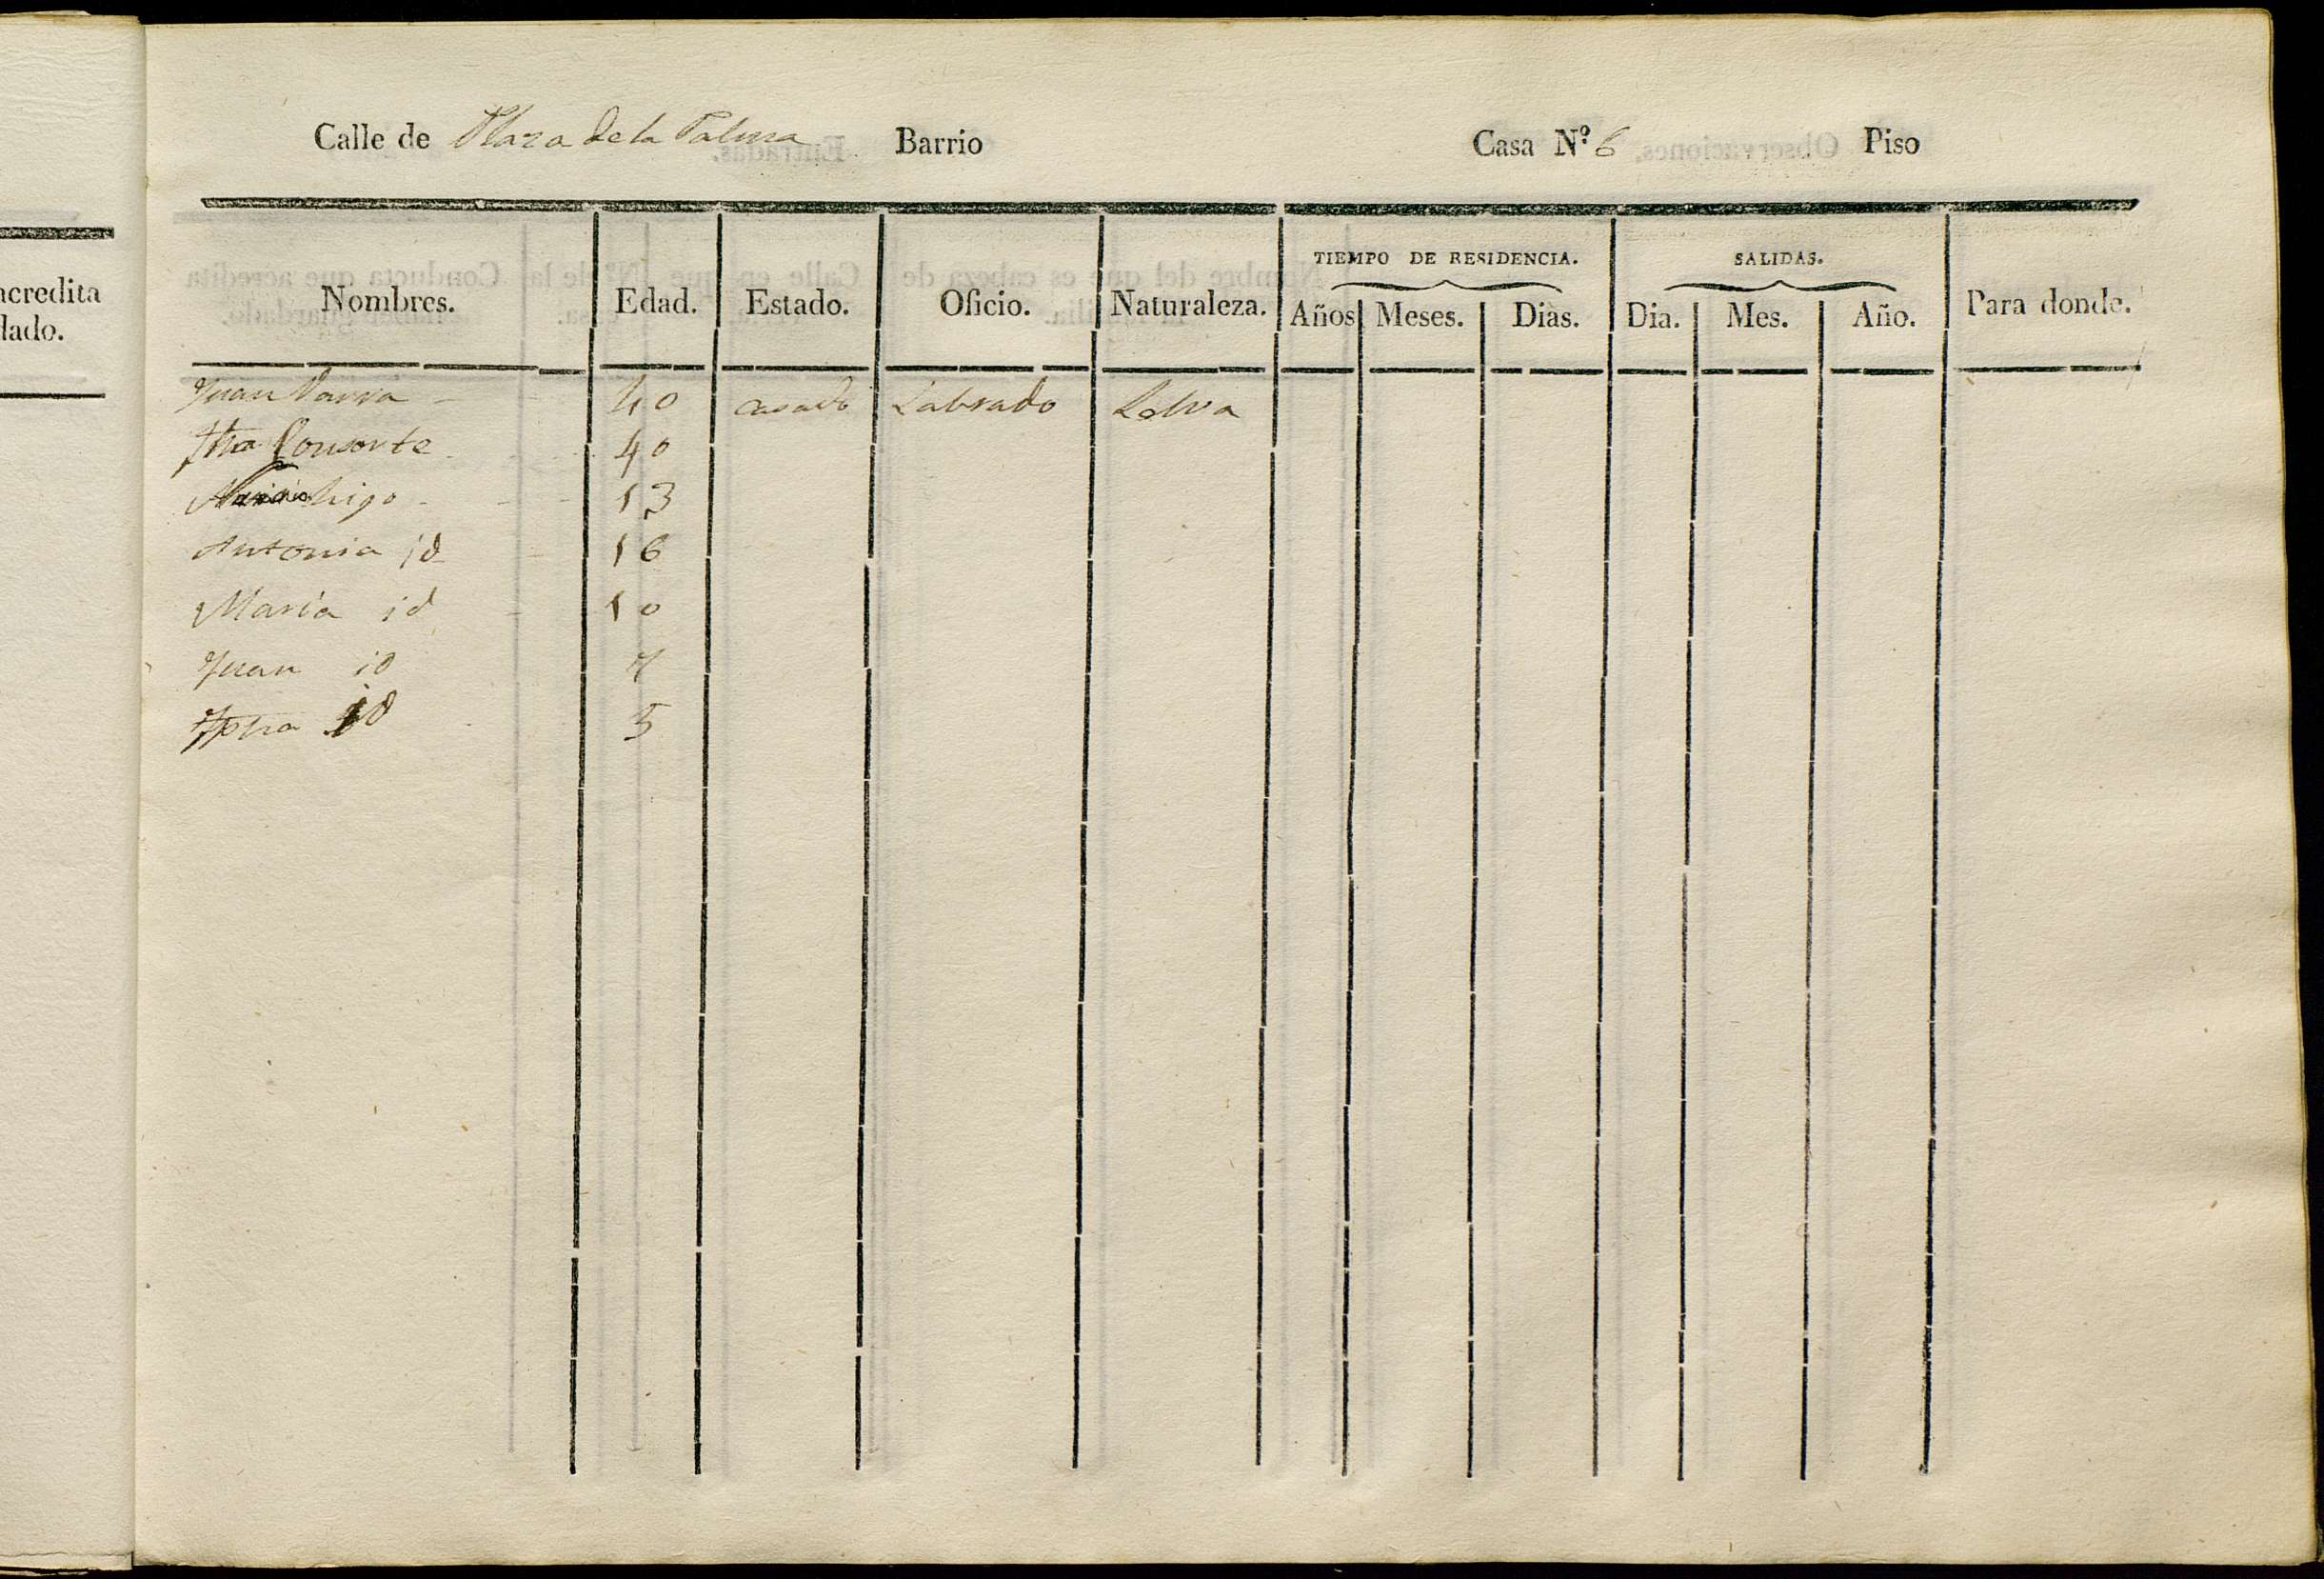 acredita
dado.
Calle de Plaza de la Palma Barrio Casa N.º 6 Piso
TIEMPO DE RESIDENCIA. SALIDAS.
Nombres. Edad. Estado. Oficio. Naturaleza. Años Meses. Dias. Dia. Mes. Año. Para donde.
Juan 40 casado Labrado Selva
Consorte 40
higo 13
Antonia id 16
Maria id 10
Juan id 7
Jpha id 5